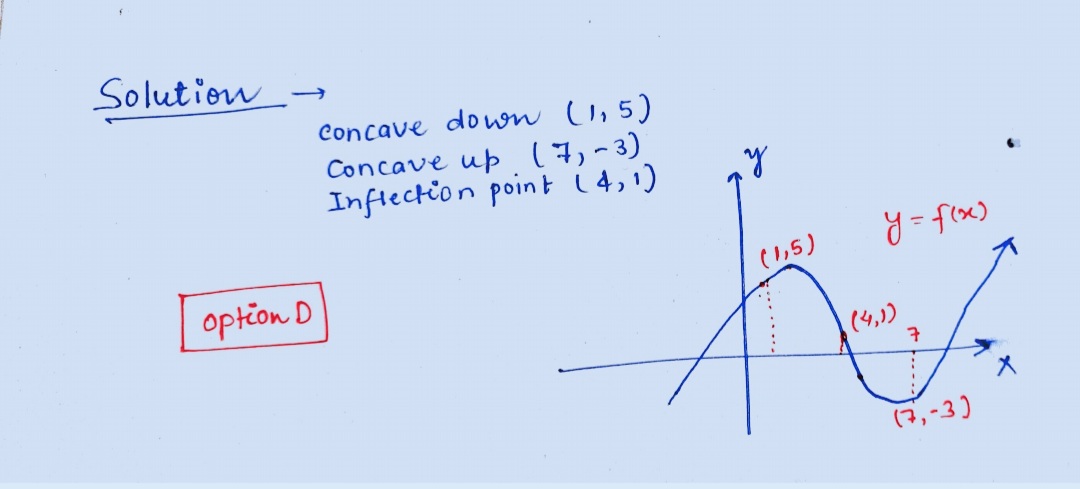 Solution →
concave down (1, 5)
Concave up (7, -3)
Inflection point (4, 1)
y
y = f(x)
(1,5)
option D
(4,1)
7
x
(7, -3)